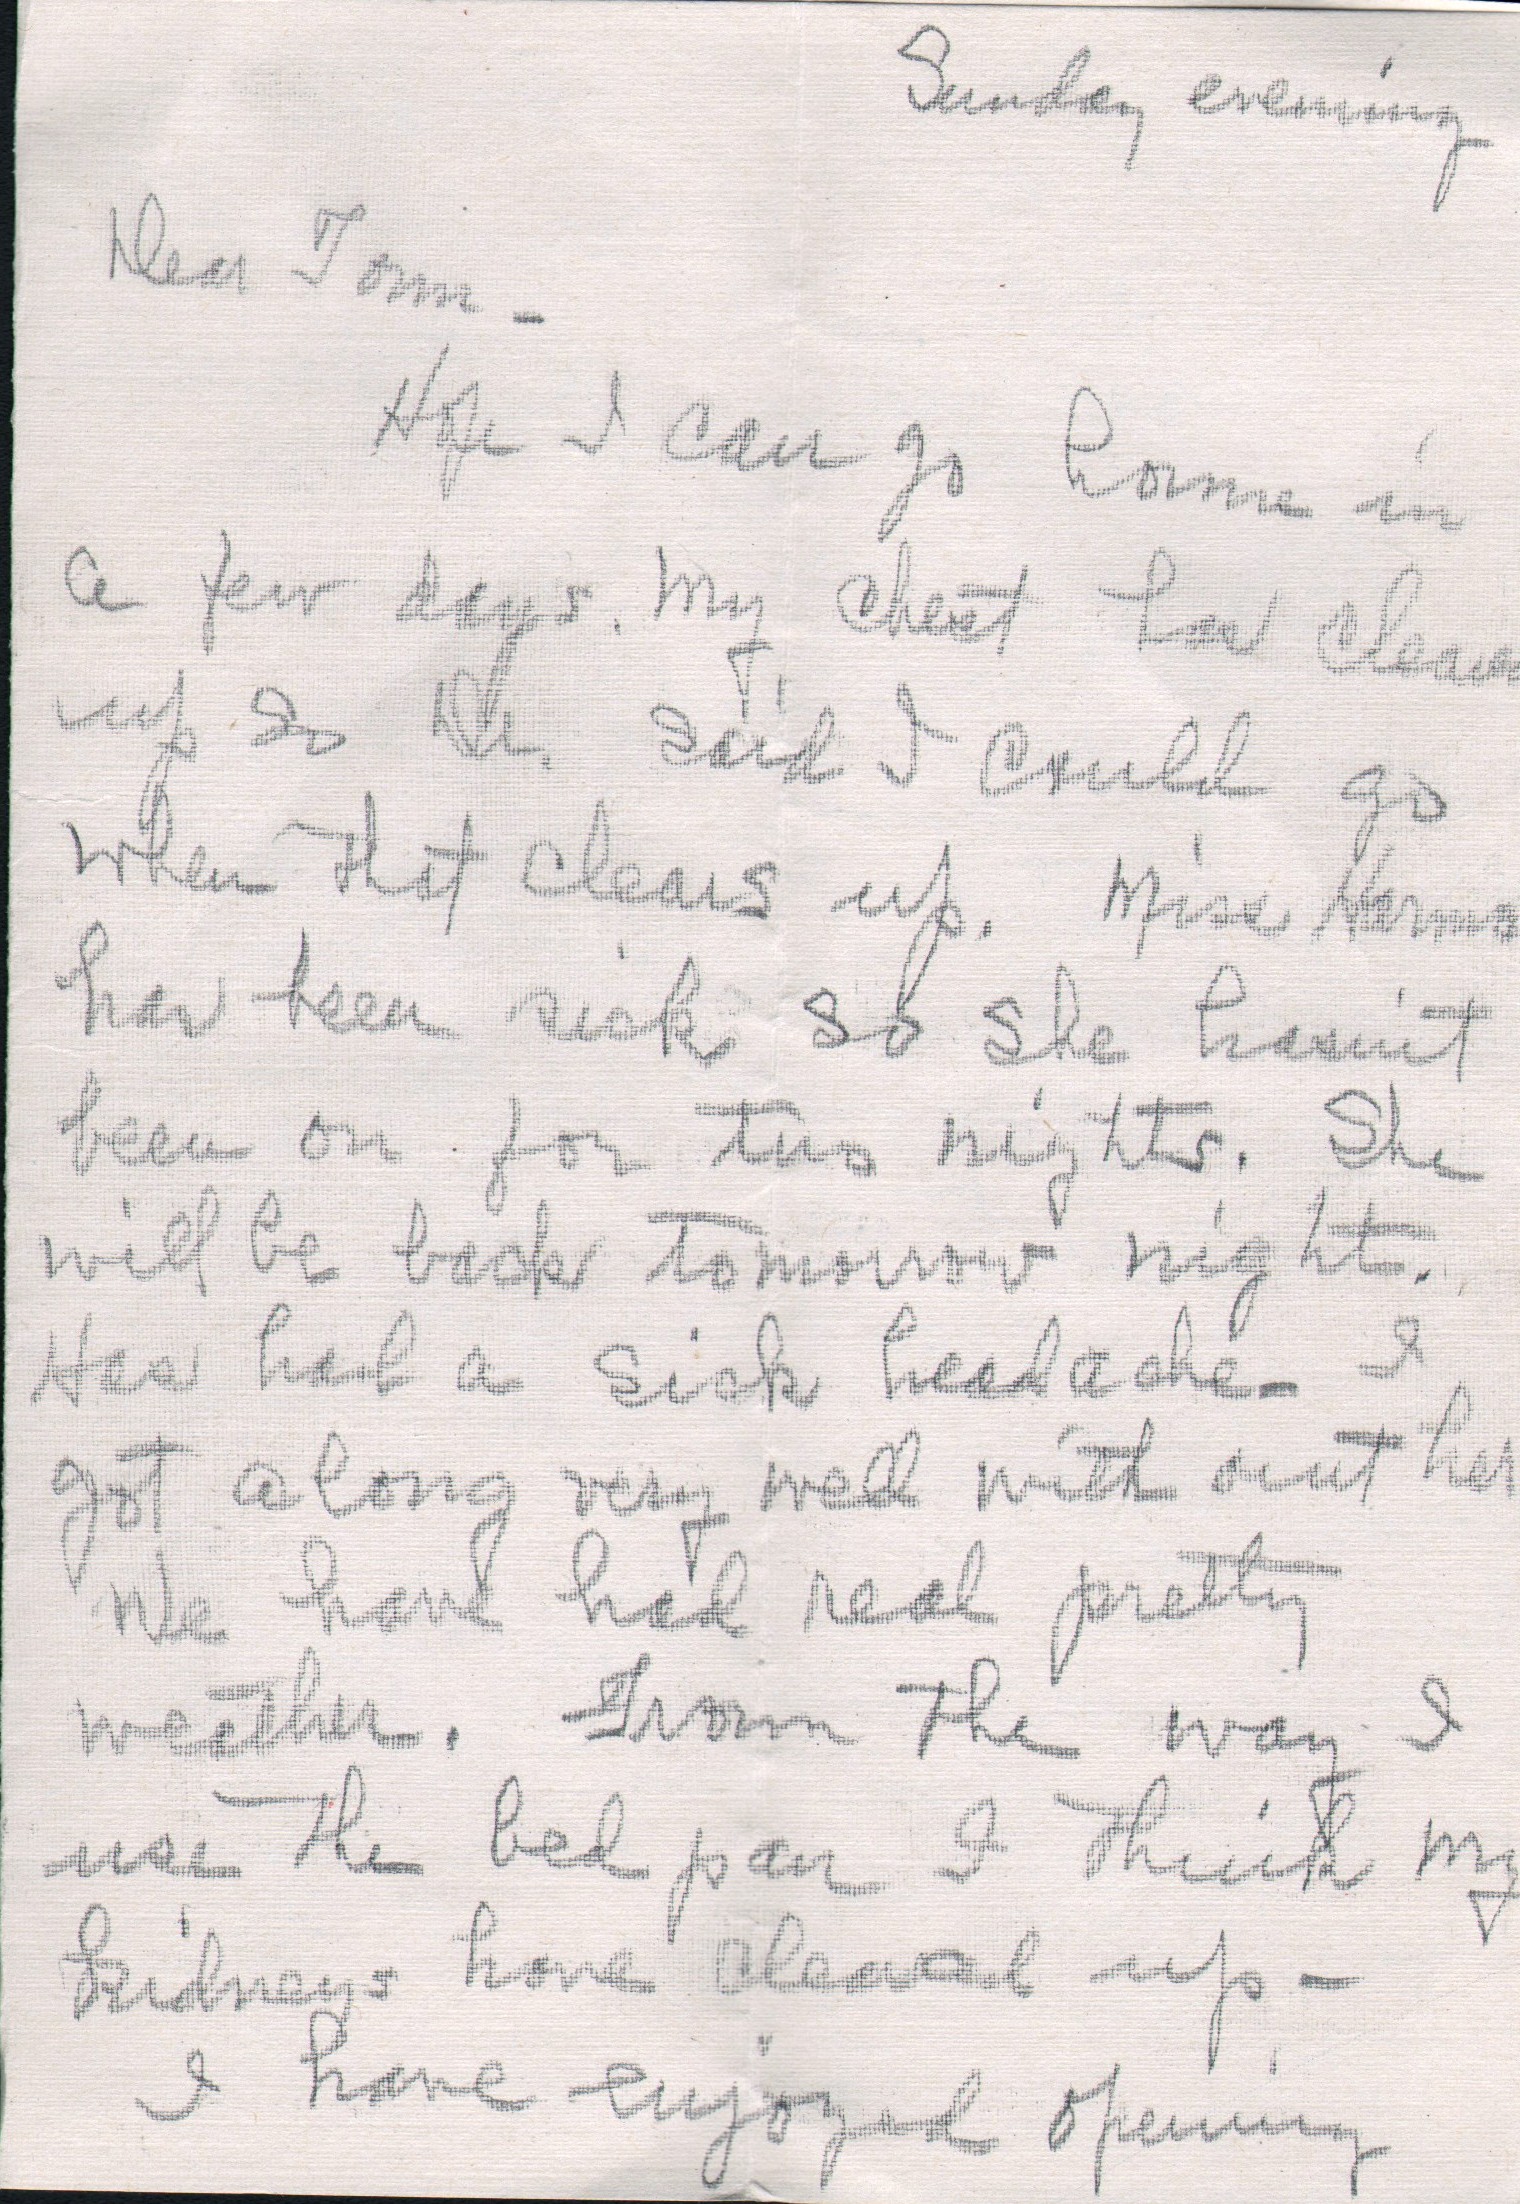 Sunday evening
Dear Tom -
Hope I can go home in
a few days. My chest has clear
up so Dr. said I could go
when that clears up. Miss
has been sick so she hasn't
been on for two nights. She
will be back tomorrow night.
Has had a sick headache - I
got along very well with out her
We have had real pretty
weather. From the way I
use the bed pan I think my
kidneys have cleared up -
I have enjoyed opening